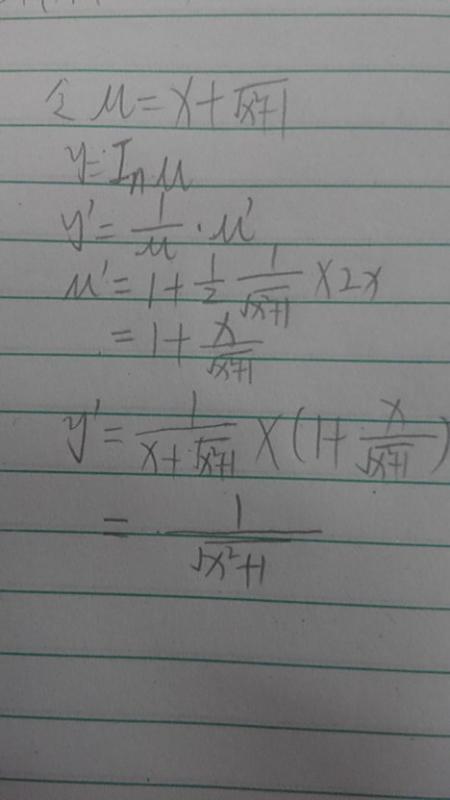 令 μ = x + √x²+1
y = In μ
y' = 1/μ · μ'
μ' = 1 + 1/2 1/√x²+1 × 2x
= 1 + x/√x²+1
y' = 1/(x + √x²+1) × (1 + x/√x²+1)
= 1/√x²+1